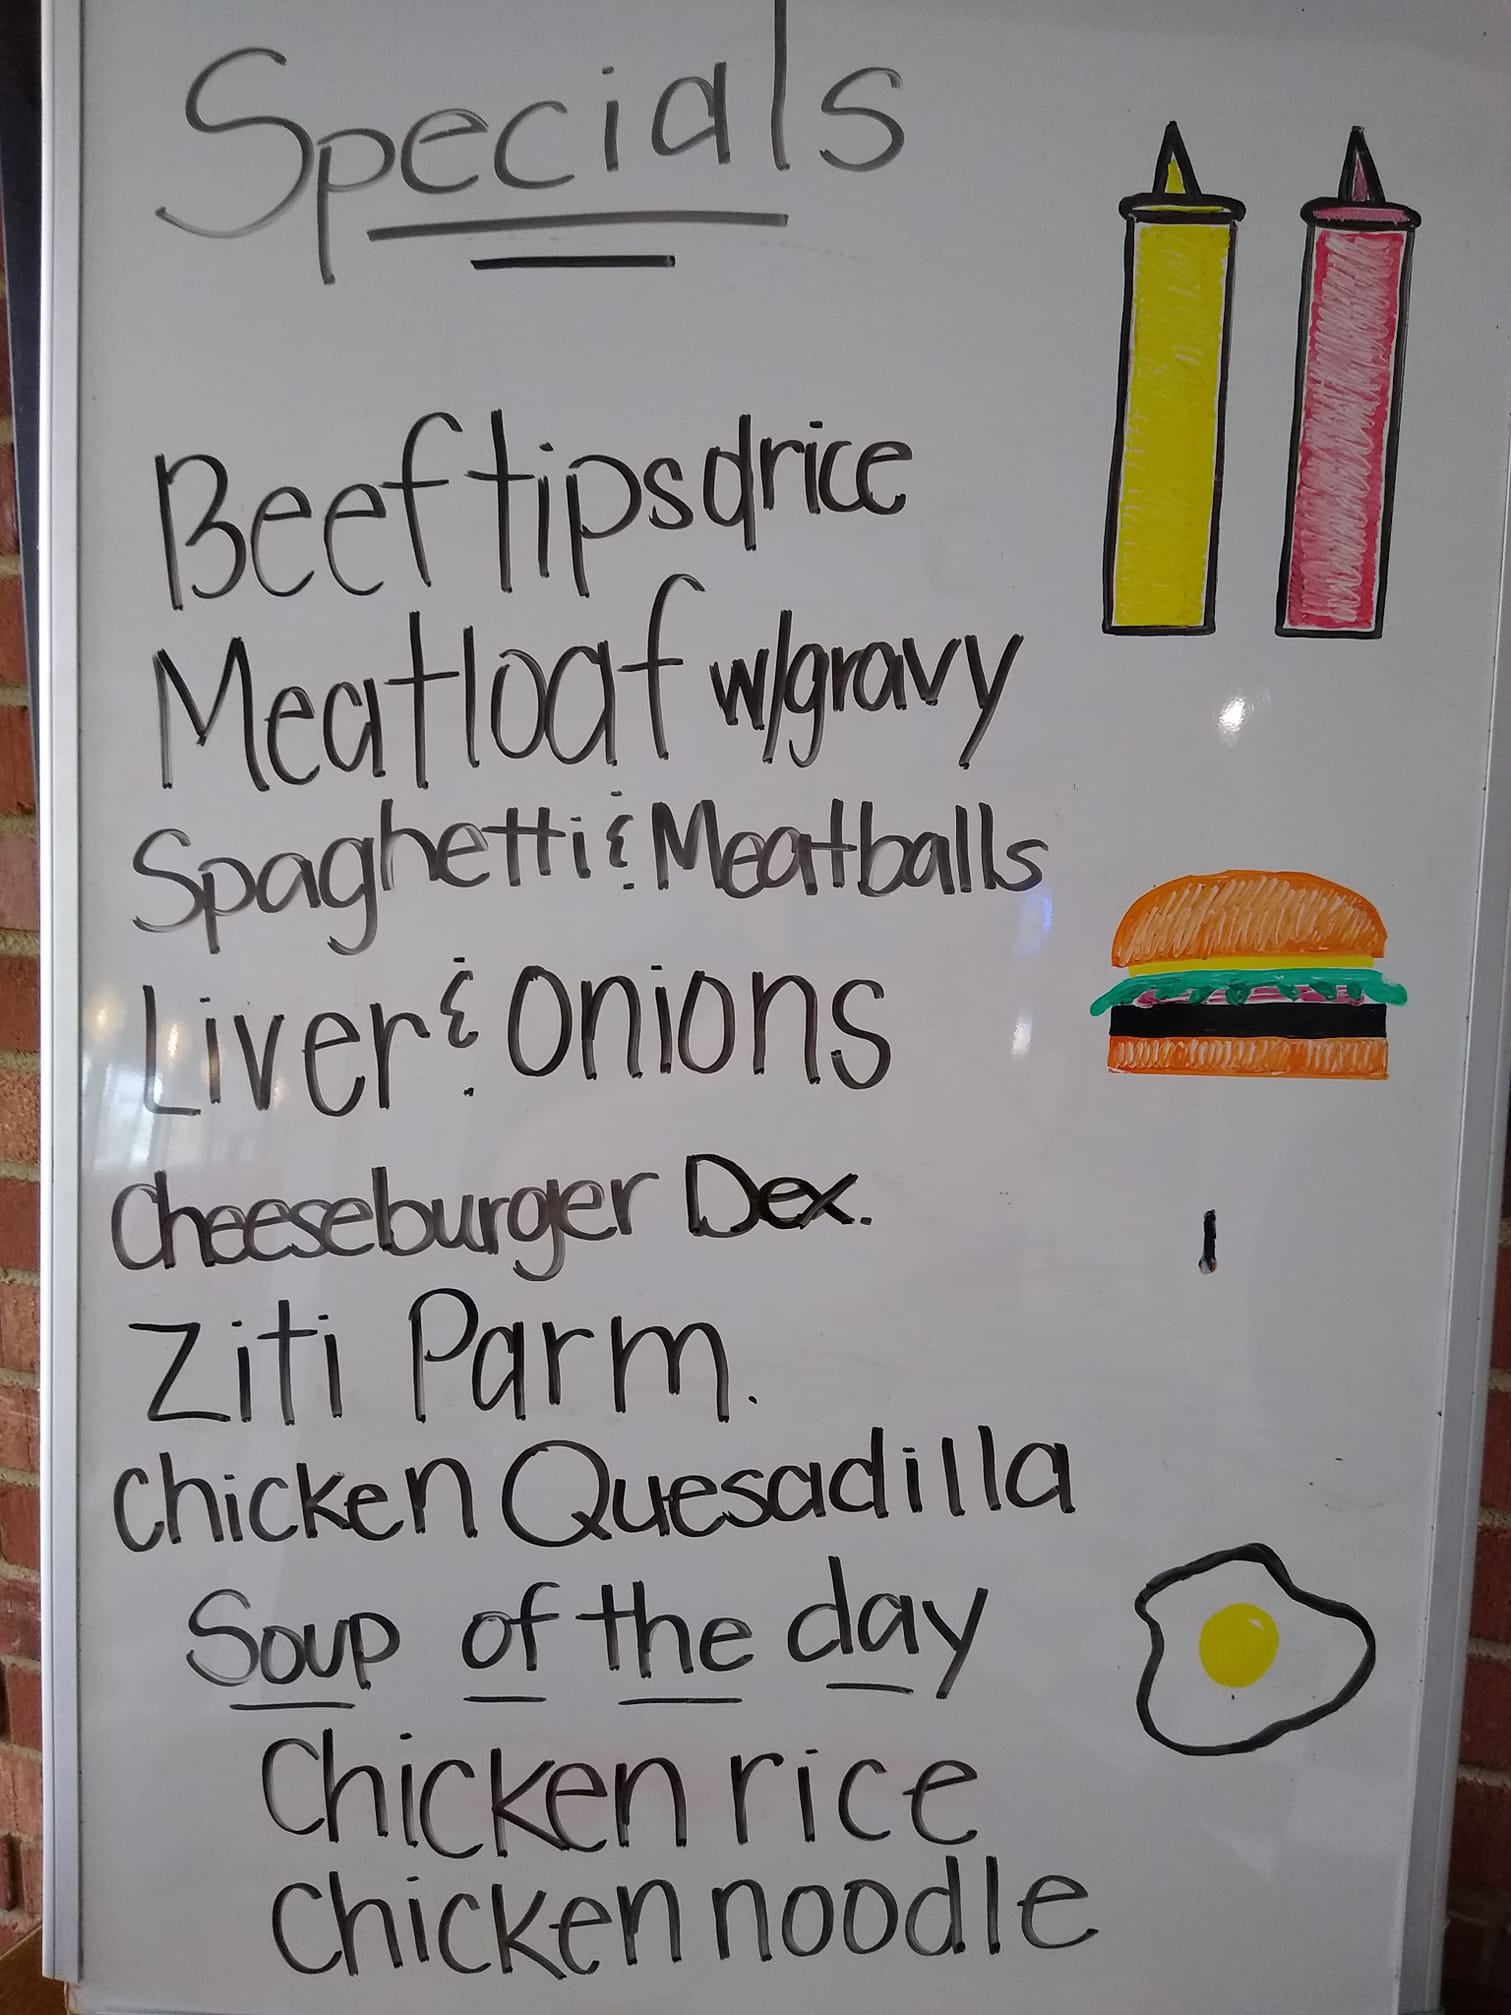 Specials
Beef tips & rice
Meatloaf w/gravy
Spaghetti & Meatballs
Liver & Onions
Cheeseburger Dex.
Ziti Parm.
Chicken Quesadilla
Soup of the day
Chicken rice
Chicken noodle